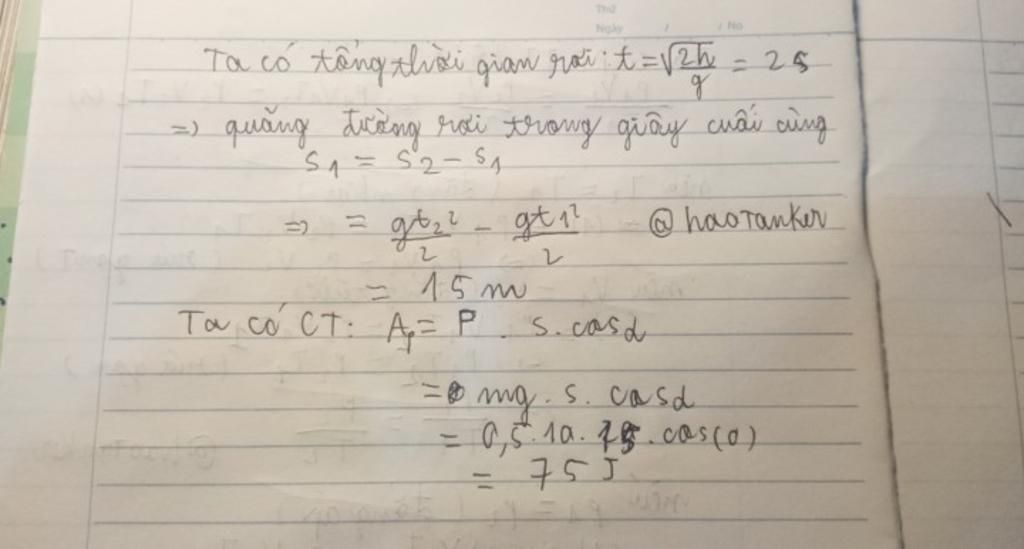 Thứ
Ngày / / No
Ta có tổng thời gian rơi: t = √2h/g = 2s
=> quãng đường rơi trong giây cuối cùng
s1 = s2 - s1
=> = gt2²/2 - gt1²/2 @haoTanker
= 15 m
Ta có CT: Ap = P . s. cosα
= mg. s. cosα
= 0,5.10.15.cos(0)
= 75 J